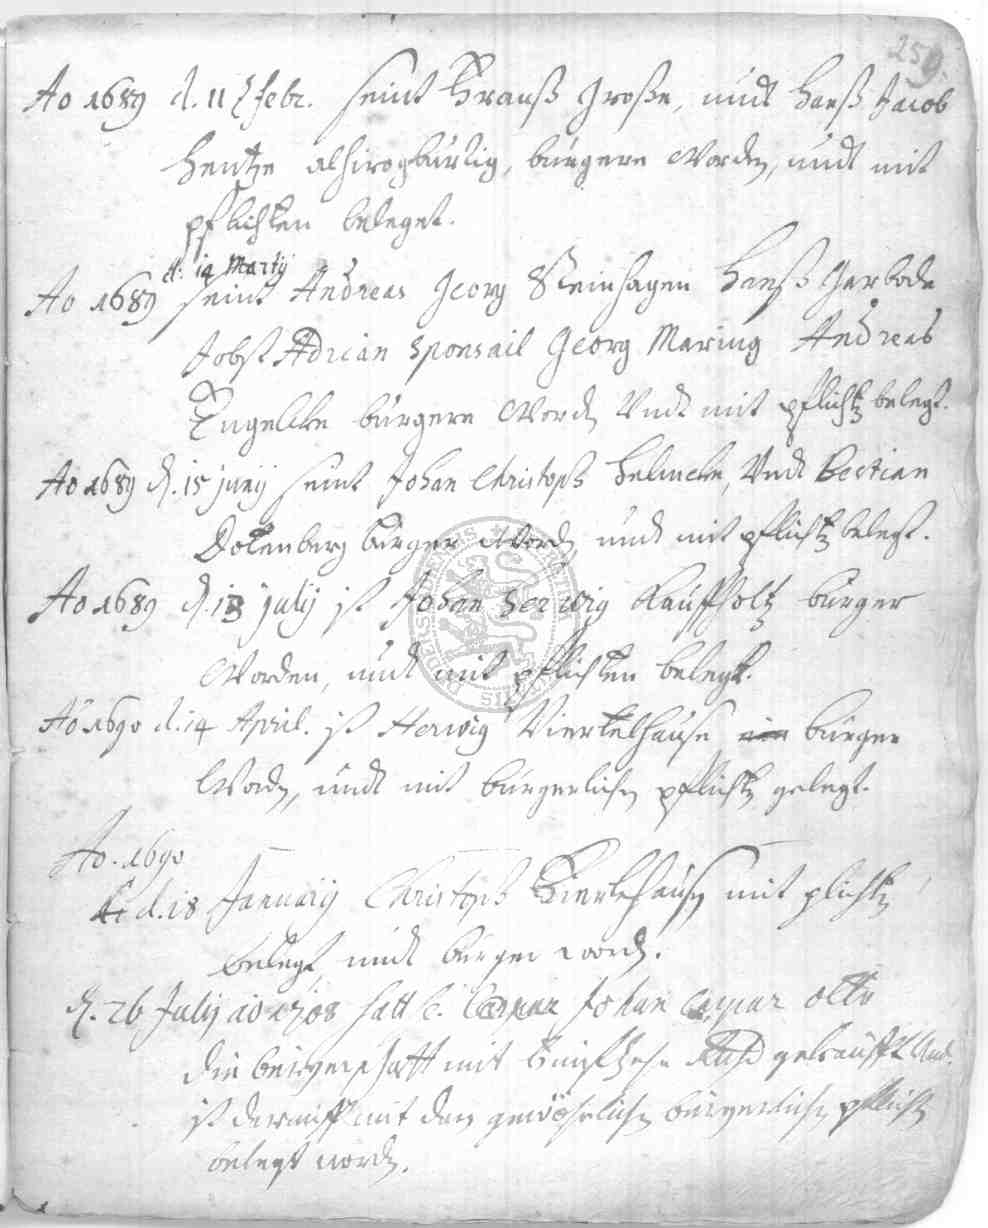 259.
Ao 1689 d. 11 febr. seint Große, undt Hanß Jacob
Hentze bürgere worden, undt mit
pflichten beleget.
d. 14 Martij
Ao 1689 seint Andreas Georg Steinhagen Hanß Garbode
Jobst Adrian Sponsail Georg Maring Andreas
Engelke bürgere worden Undt mit pflichten belegt.
Ao 1689 d. 15 junij seint Johan Christoph Helmcke, Undt Bestian
Dotenberg bürger worden, undt mit pflichten belegt.
Ao 1689 d. 13 julij ist Johan Herwig Kauffholtz bürger
Worden, undt mit pflichten belegt.
Ao 1690 d. 14 April. ist Herwig Viertelhause bürger
Worden, undt mit bürgerlichen pflichten gelegt.
Ao. 1690
d. 18 Januarij Christoph mit plichten
belegt undt bürger worden.
d. 26 Julij ao 1708 hatt Johan Caspar Otto
die bürgerschafft mit gekaufft Und
ist darauff mit den gewöhnlichen bürgerlichen pflichten
belegt worden.